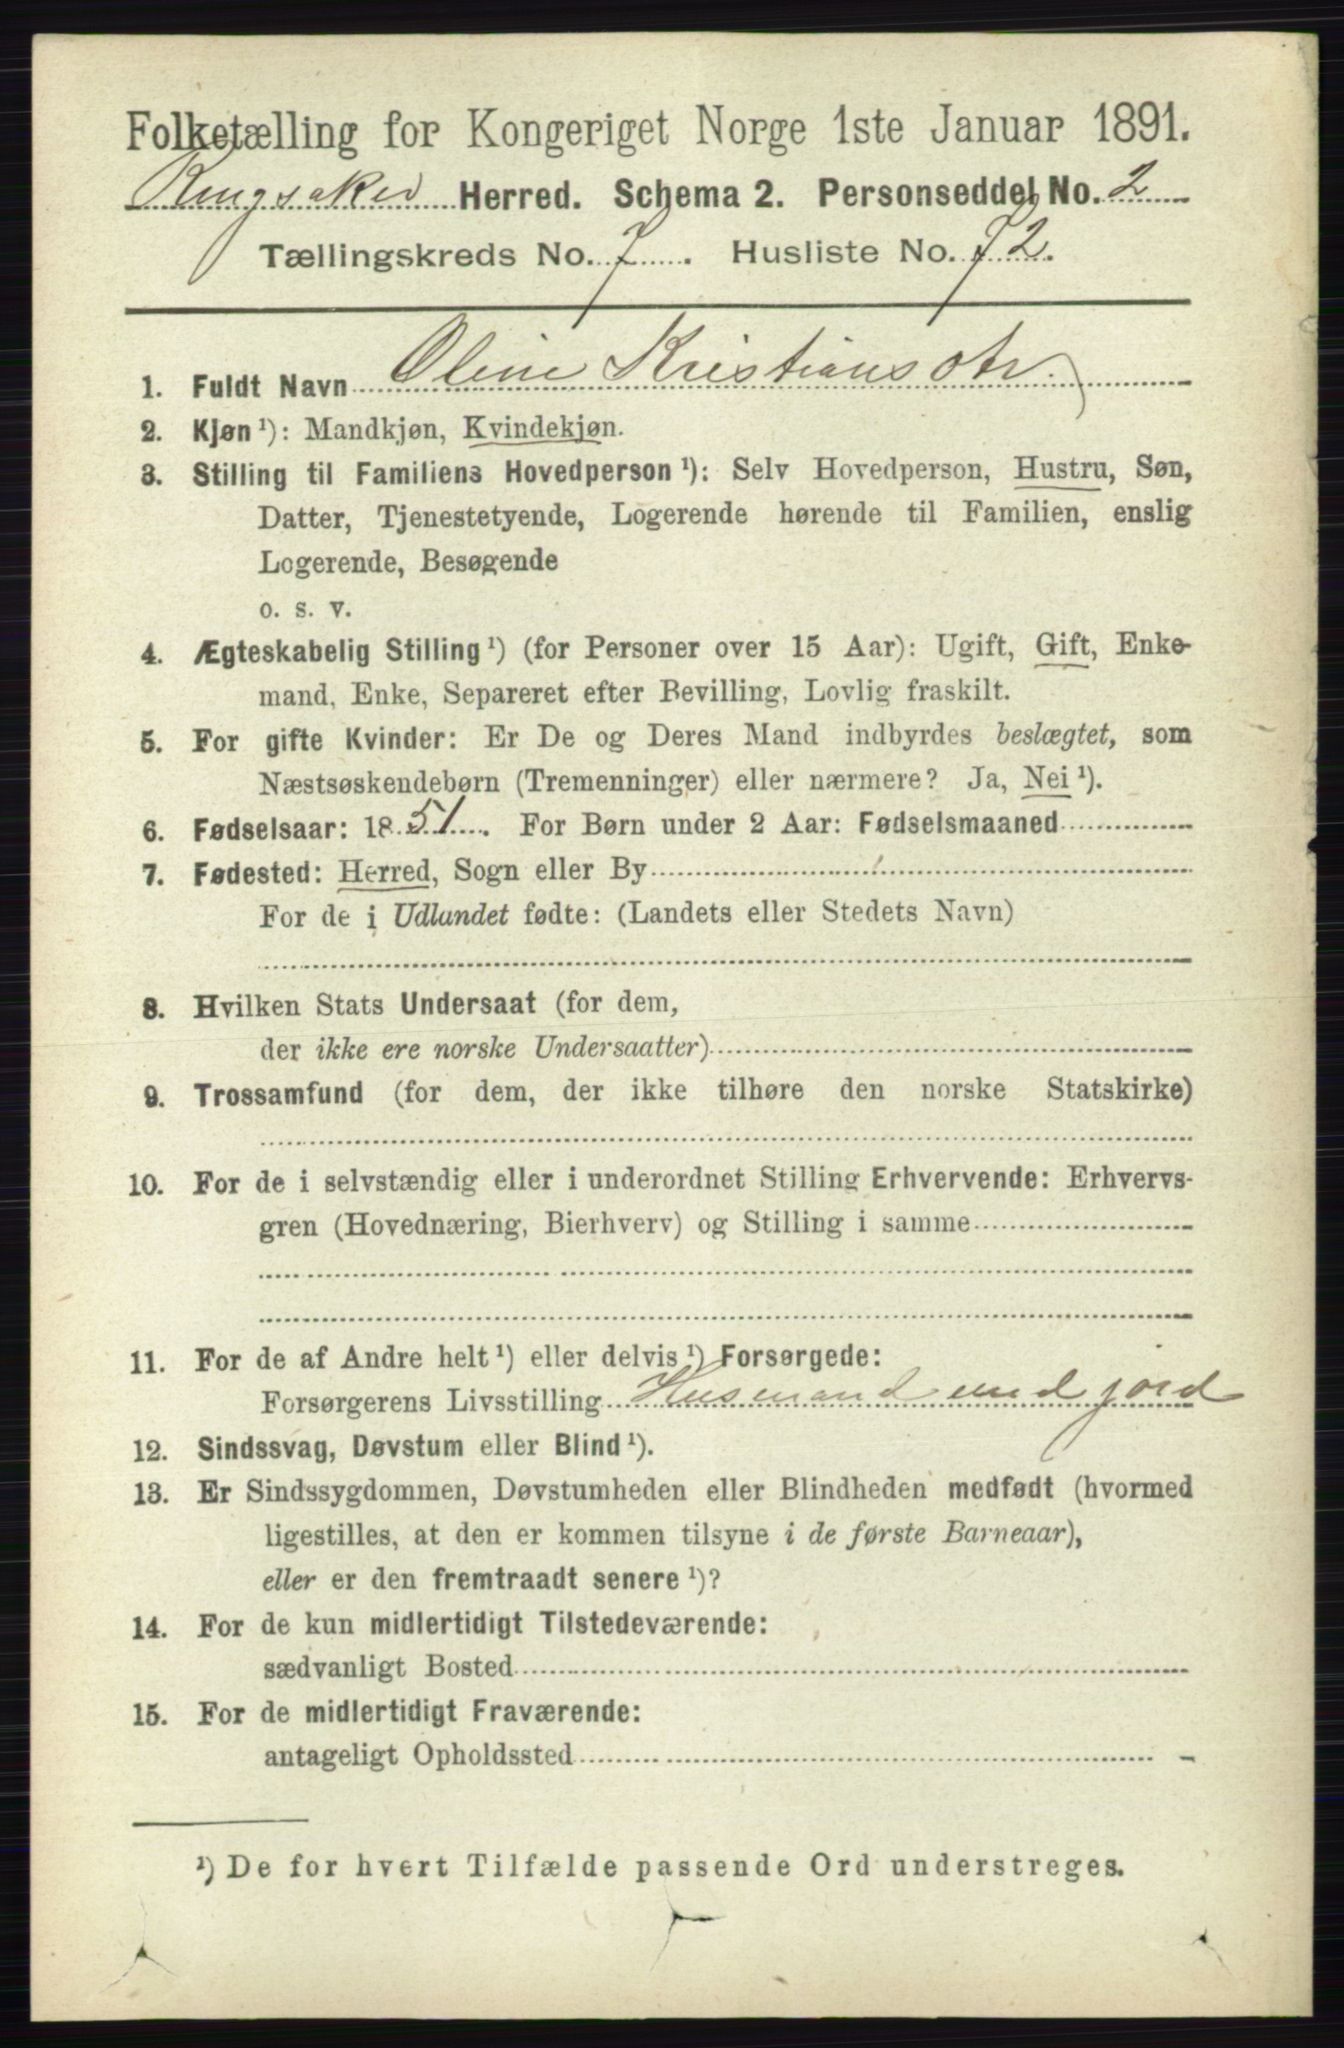 Folketælling for Kongeriget Norge 1ste Januar 1891.
Ringsaker Herred. Schema 2. Personseddel No. 2
Tællingskreds No. 7. Husliste No. 72.
1. Fuldt Navn Oline Kristiansdtr.
2. Kjøn ¹): Mandkjøn, Kvindekjøn.
3. Stilling til Familiens Hovedperson ¹): Selv Hovedperson, Hustru, Søn,
Datter, Tjenestetyende, Logerende hørende til Familien, enslig
Logerende, Besøgende
o. s. v.
4. Ægteskabelig Stilling ¹) (for Personer over 15 Aar): Ugift, Gift, Enke-
mand, Enke, Separeret efter Bevilling, Lovlig fraskilt.
5. For gifte Kvinder: Er De og Deres Mand indbyrdes beslægtet, som
Næstsøskendebørn (Tremenninger) eller nærmere? Ja, Nei ¹).
6. Fødselsaar: 1851. For Børn under 2 Aar: Fødselsmaaned
7. Fødested: Herred, Sogn eller By
For de i Udlandet fødte: (Landets eller Stedets Navn)
8. Hvilken Stats Undersaat (for dem,
der ikke ere norske Undersaatter)
9. Trossamfund (for dem, der ikke tilhøre den norske Statskirke)
10. For de i selvstændig eller i underordnet Stilling Erhvervende: Erhvervs-
gren (Hovednæring, Bierhverv) og Stilling i samme
11. For de af Andre helt ¹) eller delvis ¹) Forsørgede:
Forsørgerens Livsstilling Husmand med jord
12. Sindssvag, Døvstum eller Blind ¹).
13. Er Sindssygdommen, Døvstumheden eller Blindheden medfødt (hvormed
ligestilles, at den er kommen tilsyne i de første Barneaar),
eller er den fremtraadt senere ¹)?
14. For de kun midlertidigt Tilstedeværende:
sædvanligt Bosted
15. For de midlertidigt Fraværende:
antageligt Opholdssted
¹) De for hvert Tilfælde passende Ord understreges.